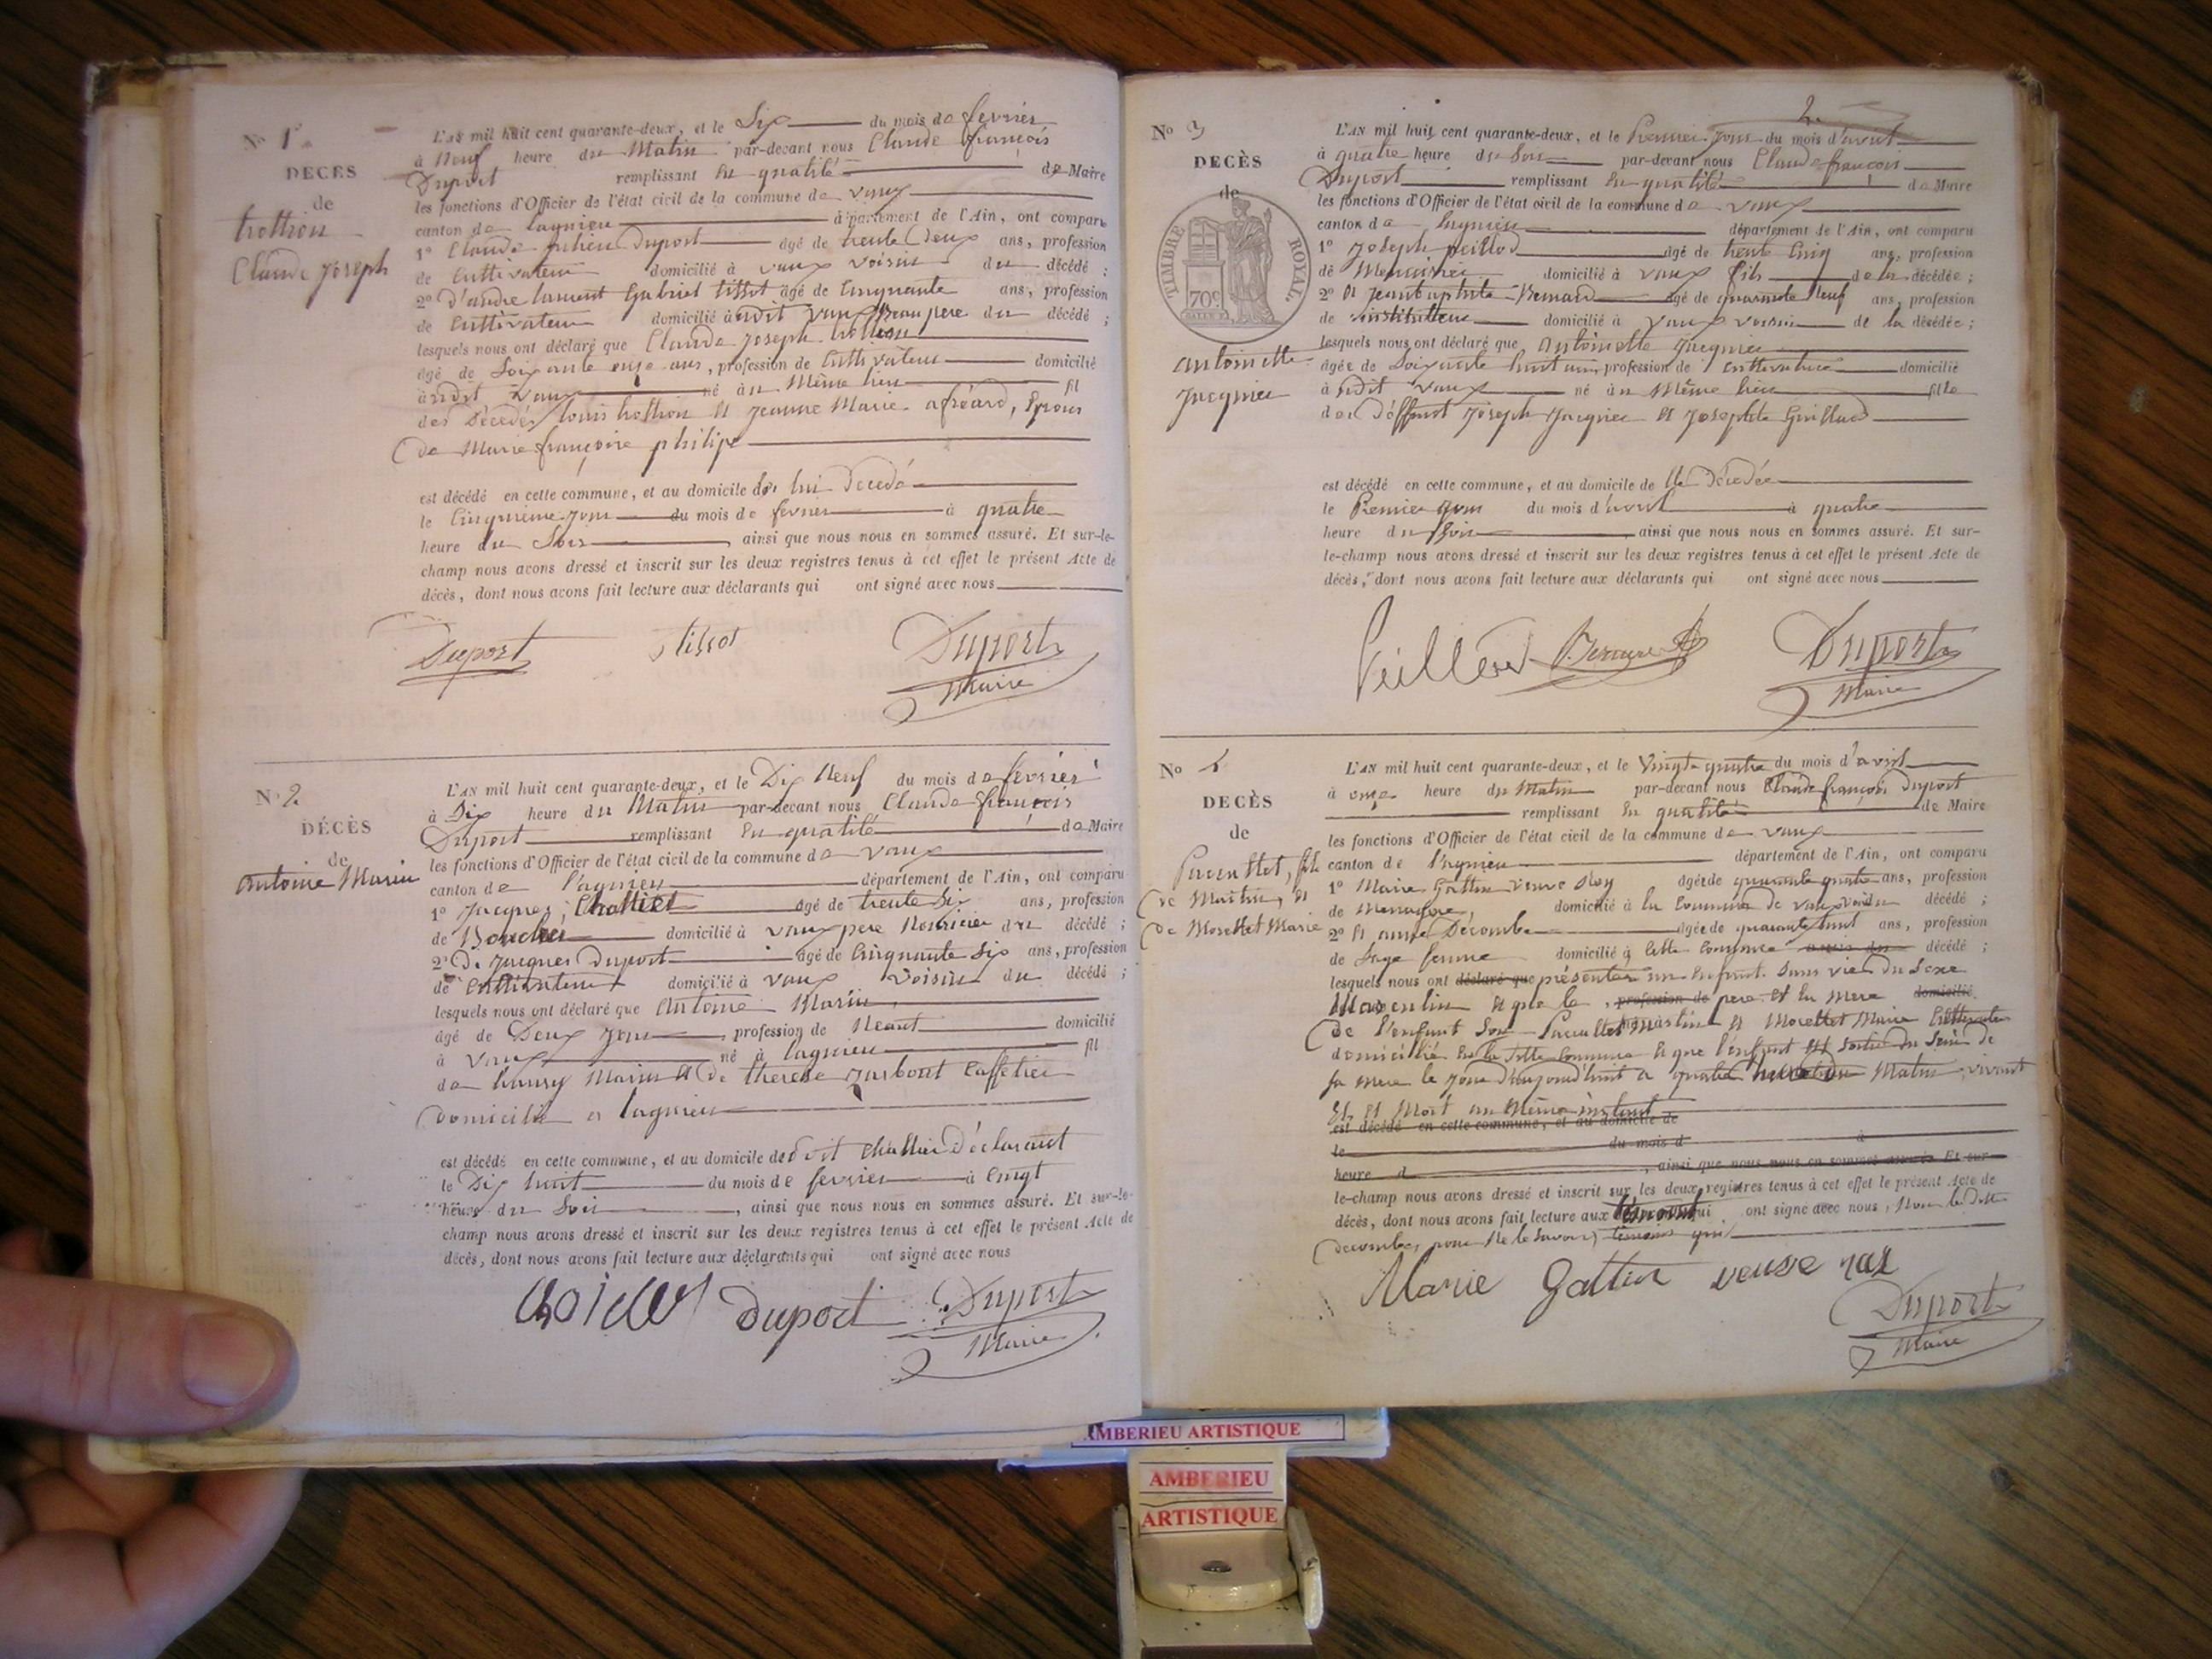 N° 1er
DECES
de
trottion
Claude Joseph
L'AN mil huit cent quarante-deux, et le Six du mois de fevrier
à Neuf heure du Matin par-devant nous Claude françois
Duport remplissant En qualité de Maire
les fonctions d'Officier de l'état civil de la commune de vaux
canton de lagnieu département de l'Ain, ont comparu
1° Claude Duport âgé de trente Deux ans, profession
de Cultivateur domicilié à vaux voisin du décédé ;
2° d'andre laurent Gabriel tissot âgé de Cinquante ans, profession
de Cultivateur domicilié àudit vaux Beaupere du décédé ;
lesquels nous ont déclaré que Claude Joseph trottion
âgé de Soixante onze ans, profession de Cultivateur domicilié
àudit vaux né au Même lieu fil
des Décedés louis trottion et Jeanne Marie Epoux
de Marie françoise philipe
est décédé en cette commune, et au domicile de lui Décedé
le Cinquieme jour du mois de fevrier à quatre
heure du Soir ainsi que nous nous en sommes assuré. Et sur-le-
champ nous avons dressé et inscrit sur les deux registres tenus à cet effet le présent Acte de
décès, dont nous avons fait lecture aux déclarants qui ont signé avec nous
Duport tissot Duport
Maire
N° 2
DÉCÈS
de
Antoine Marin
L'AN mil huit cent quarante-deux, et le Dix Neuf du mois de fevrier
à Dix heure du Matin par-devant nous Claude françois
Duport remplissant En qualité de Maire
les fonctions d'Officier de l'état civil de la commune de vaux
canton de lagnieu département de l'Ain, ont comparu
1° Jacques âgé de trente Six ans, profession
de Boucher domicilié à vaux pere Nouricier du décédé ;
2° De Jacques Duport âgé de Cinquante Six ans, profession
de Cultivateur domicilié à vaux voisin du décédé ;
lesquels nous ont déclaré que Antoine Marin
âgé de Deux jour profession de Neant domicilié
à vaux né à lagnieu fil
de Marin et de therese Caffetier
domicilié a lagnieu
est décédé en cette commune, et au domicile dudit Déclarant
le Dix huit du mois de fevrier à
heure du Soir, ainsi que nous nous en sommes assuré. Et sur-le-
champ nous avons dressé et inscrit sur les deux registres tenus à cet effet le présent Acte de
décès, dont nous avons fait lecture aux déclarants qui ont signé avec nous
duport Duport
Maire
2
N° 3
DECÈS
de
TIMBRE ROYAL
70c
Antoinette
Jacquier
L'AN mil huit cent quarante-deux, et le Premier jour du mois d'avril
à quatre heure du Soir par-devant nous Claude françois
Duport remplissant En qualité de Maire
les fonctions d'Officier de l'état civil de la commune de vaux
canton de lagnieu département de l'Ain, ont comparu
1° Joseph peillod âgé de trente Cinq ans, profession
de Menuisier domicilié à vaux fils de la décédée ;
2° et Jeanbaptiste Bernard âgé de quarante Neuf ans, profession
de instituteur domicilié à vaux voisin de la décédée ;
lesquels nous ont déclaré que Antoinette Jacquier
âgée de Soixante huit ans, profession de cultivatrice domicilié
àudit vaux né au Même lieu fille
des Déffunt Joseph Jacquier et Josephte Guillaud
est décédé en cette commune, et au domicile de Décedée
le Premier jour du mois d'avril à quatre
heure du Soir ainsi que nous nous en sommes assuré. Et sur-
le-champ nous avons dressé et inscrit sur les deux registres tenus à cet effet le présent Acte de
décès, dont nous avons fait lecture aux déclarants qui ont signé avec nous
Peillod Bernard Duport
Maire
No 4
DECÈS
de
fils
de Martin, et
de Morettet Marie
L'AN mil huit cent quarante-deux, et le Vingt quatre du mois d'avril
à onze heure du Matin par-devant nous Claude françois Duport
remplissant En qualité de Maire
les fonctions d'Officier de l'état civil de la commune de vaux
canton de lagnieu département de l'Ain, ont comparu
1° Marie Gattin veuve Rey âgée de quarante quatre ans, profession
de Menagere, domicilié à la Commune de vaux décédé ;
2° et anne Décombe âgée de quarante huit ans, profession
de Sage femme domicilié à Cette Commune décédé ;
lesquels nous ont déclaré que présenter un Enfant Sans vie du Sexe
Masculin et que le profession de pere et la mere domicilié
de l'enfant Son Martin et Morettet Marie
domicilié En la dite Commune et que l'enfant est Sortie du Sein de
Sa mere le jour d'aujourd'huit a quatre Matin, vivant
Et et Mort au Même instant
est décédé en cette commune, et au domicile de
le du mois d à
heure d , ainsi que nous nous en sommes assurés Et sur-
le-champ nous avons dressé et inscrit sur les deux registres tenus à cet effet le présent Acte de
décès, dont nous avons fait lecture aux qui ont signé avec nous, Non la dite
decombe, pour Ne le Savoir,
Marie Gattin veuve rai
Duport
Maire
AMBERIEU ARTISTIQUE
AMBERIEU
ARTISTIQUE